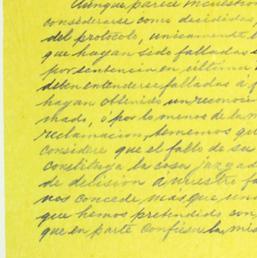 Aunque parece incuestion
considerarse como decididas,
del protocolo, unicamente l
que hayan sido falladas e
por sentencia en última
deben entenderse falladas á f
hayan obtenido un reconoci
mado, ó por lo menos de la m
reclamacion, tememos qu
considere que el fallo de su
constituya la cosa juzgad
de decision á nuestro fa
nos concede mas que un
que hemos pretendido con
que en parte confiesa la mis